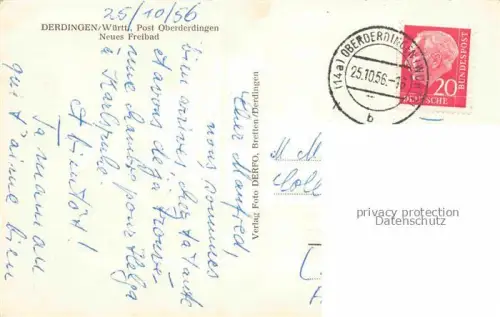 25/10/56
DERDINGEN/Württ. Post Oberderdingen
Neues Freibad
Cher Manfred,
nous sommes
bien arrivés chez ta Tante
et avons déjà trouvé
une chambre pour Helga
à Karlsruhe.
A bientôt!
Ta maman
qui t'aime bien
Verlag Foto DERFO, Bretten/Derdingen
(14a) OBERDERDINGEN
25.10.56
b
20
DEUTSCHE
BUNDESPOST
M M
privacy protection
Datenschutz